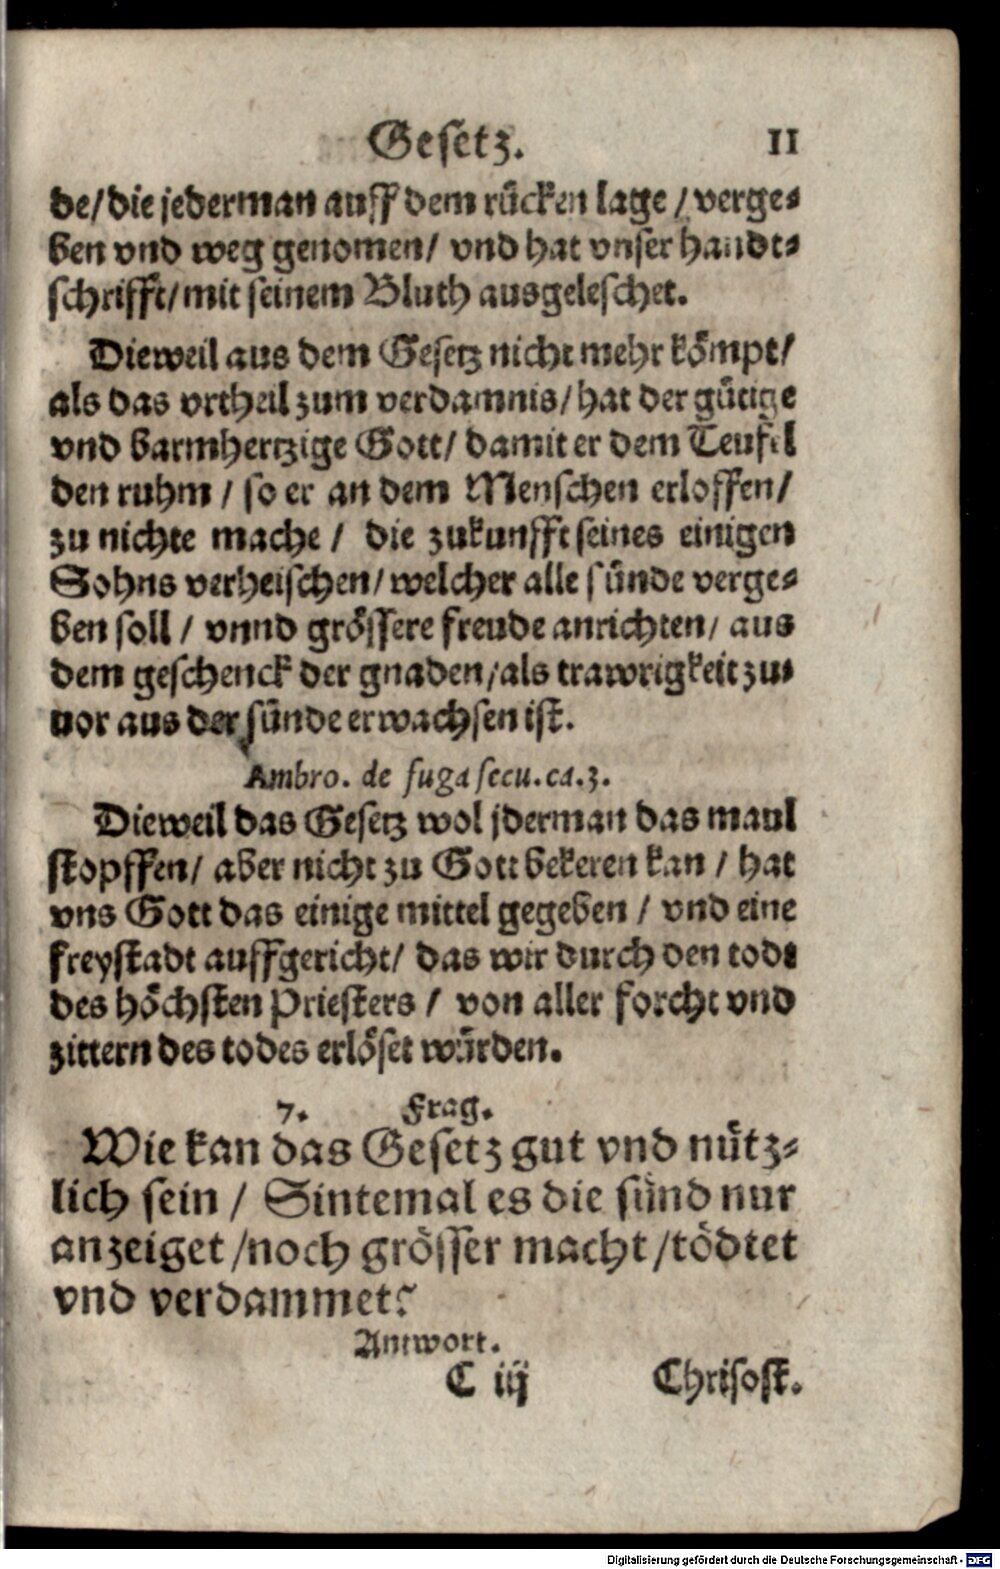 Gesetz. 11
de/die jederman auff dem rücken lage / verge-
ben vnd weg genomen/ vnd hat vnser handt-
schrifft/mit seinem Bluth ausgeleschet.
Dieweil aus dem Gesetz nicht mehr kömpt/
als das vrtheil zum verdamnis/hat der gütige
vnd barmhertzige Gott/ damit er dem Teufel
den ruhm / so er an dem Menschen erloffen/
zu nichte mache / die zukunfft seines einigen
Sohns verheischen/ welcher alle sünde verge-
ben soll / vnnd grössere freude anrichten/ aus
dem geschenck der gnaden/als trawrigkeit zu-
uor aus der sünde erwachsen ist.
Ambro. de fuga secu. ca. 3.
Dieweil das Gesetz wol jderman das maul
stopffen/ aber nicht zu Gott bekeren kan / hat
vns Gott das einige mittel gegeben / vnd eine
freystadt auffgericht/ das wir durch den todt
des höchsten Priesters / von aller forcht vnd
zittern des todes erlöset würden.
7. Frag.
Wie kan das Gesetz gut vnd nütz-
lich sein / Sintemal es die sünd nur
anzeiget /noch grösser macht /tödtet
vnd verdammet?
Antwort.
C iij Chrisost.
Digitalisierung gefördert durch die Deutsche Forschungsgemeinschaft - DFG